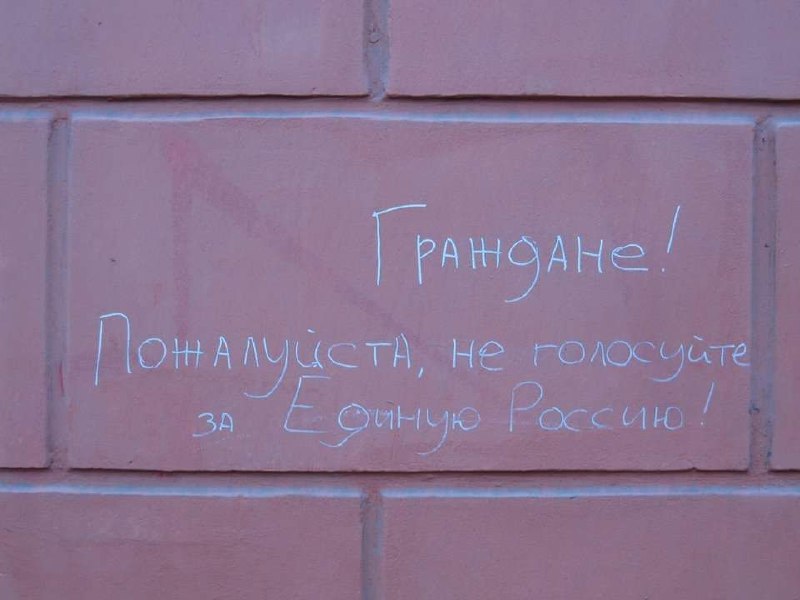 Граждане!
Пожалуйста, не голосуйте
за Единую Россию!